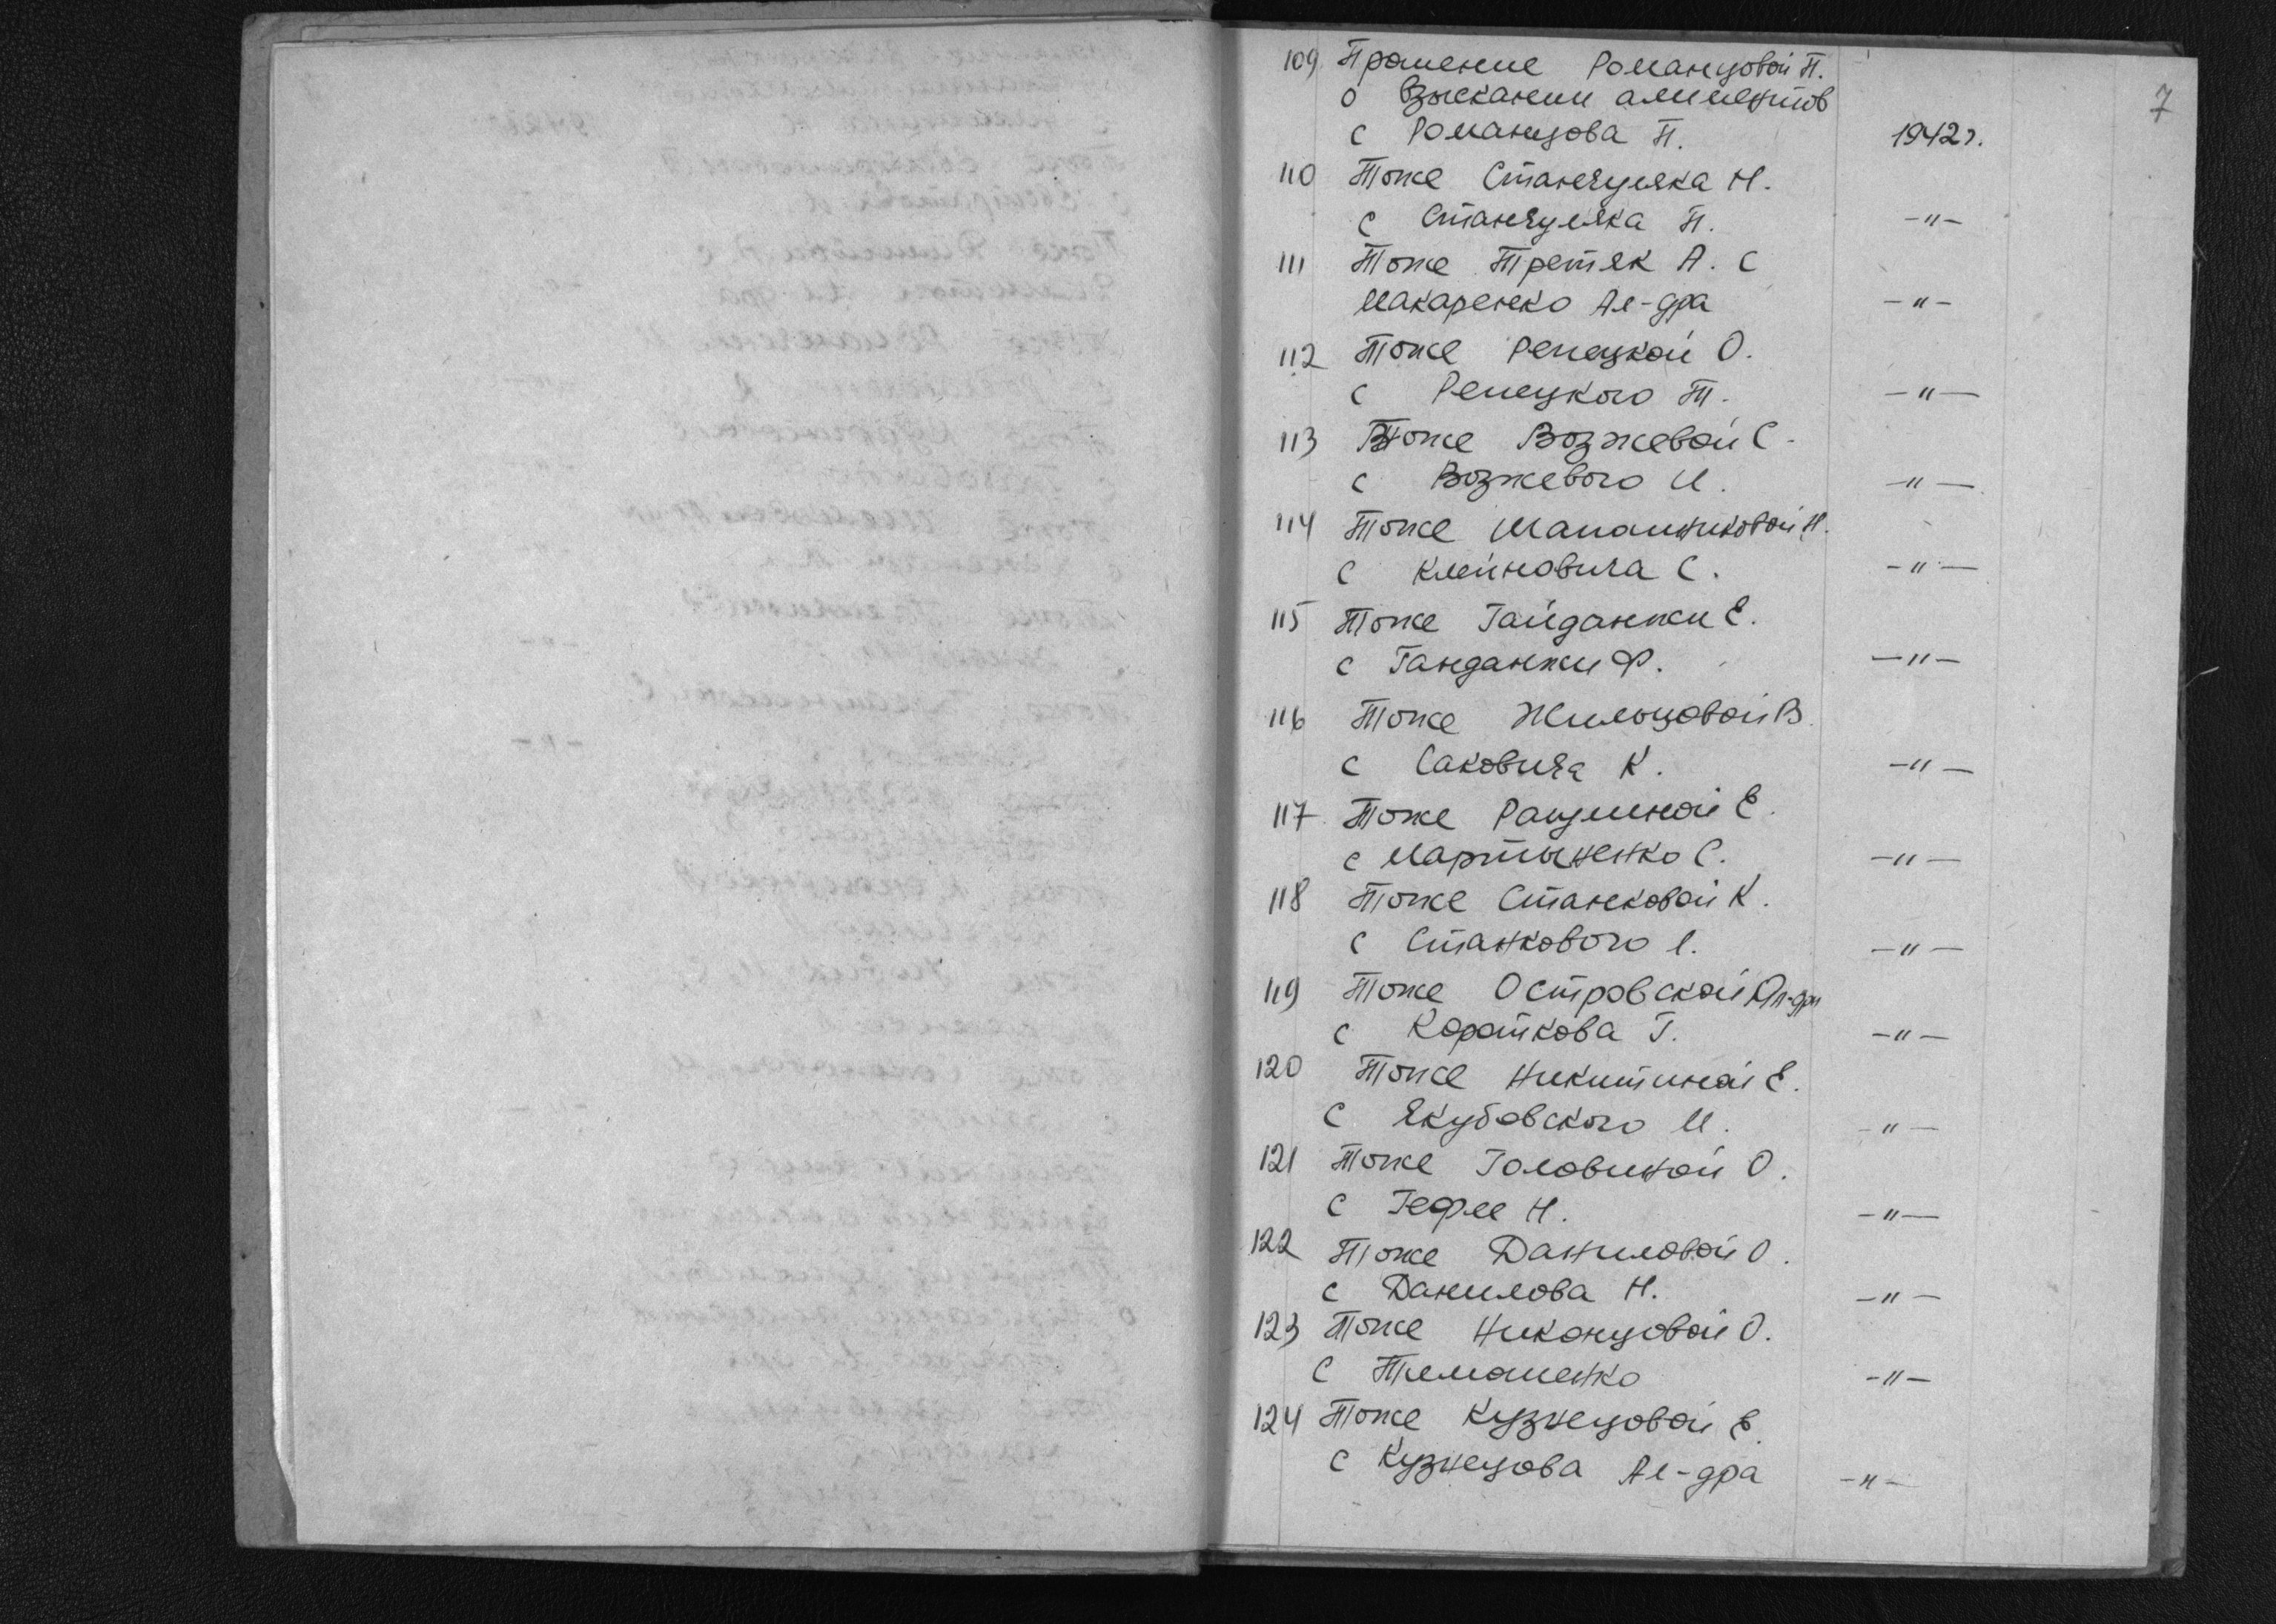 7
109 Прошение Романцовой П.
о взыскании алиментов
с Романцова П. 1942 г.
110 Тоже Станчуляка Н.
с Станчуляка П. -"-
111 Тоже Третяк А. с
Макаренко Ал-дра -"-
112 Тоже Репецкой О.
с Репецкого Т. -"-
113 Тоже Возжевой С.
с Возжевого И. -"-
114 Тоже Шапошниковой Н.
с Клейновича С. -"-
115 Тоже Гайданжи Е.
с Ганданжи Ф. -"-
116 Тоже Жильцовой В.
с Саковича К. -"-
117 Тоже Ращиной Е.
с Мартыненко С. -"-
118 Тоже Станковой К.
с Станкового -"-
119 Тоже Островской Ал-дри
с Короткова Г. -"-
120 Тоже Никитиной Е.
с Якубовского И. -"-
121 Тоже Головиной О.
с Гефле Н. -"-
122 Тоже Даниловой О.
с Данилова Н. -"-
123 Тоже Никонцовой О.
с Тимошенко -"-
124 Тоже Кузнецовой Е.
с Кузнецова Ал-дра -"-